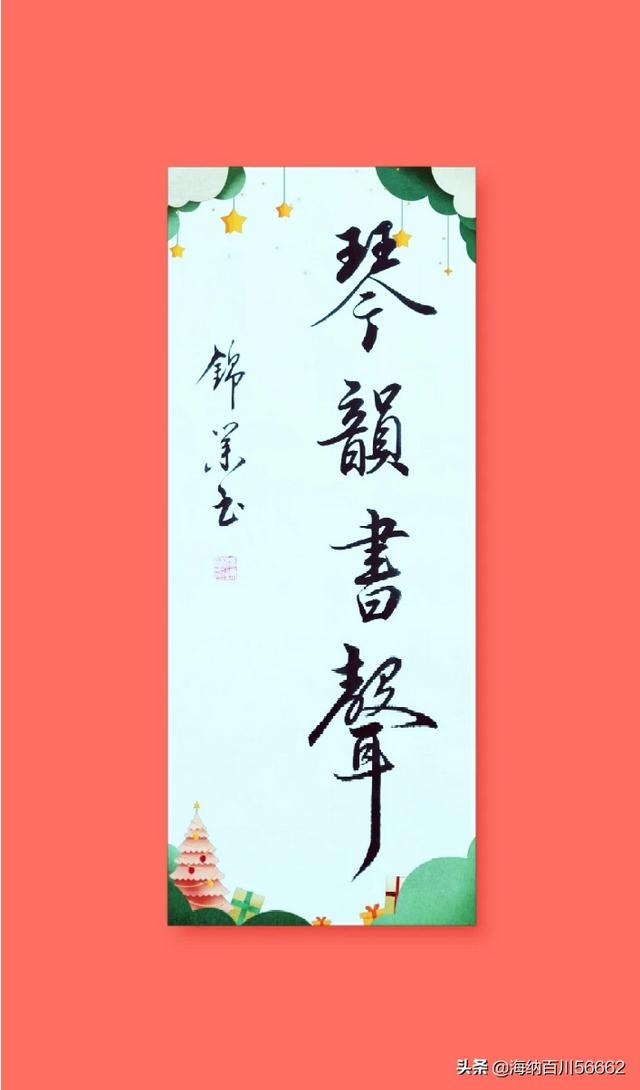 琴韻書聲
錦業
头条 @海纳百川56662